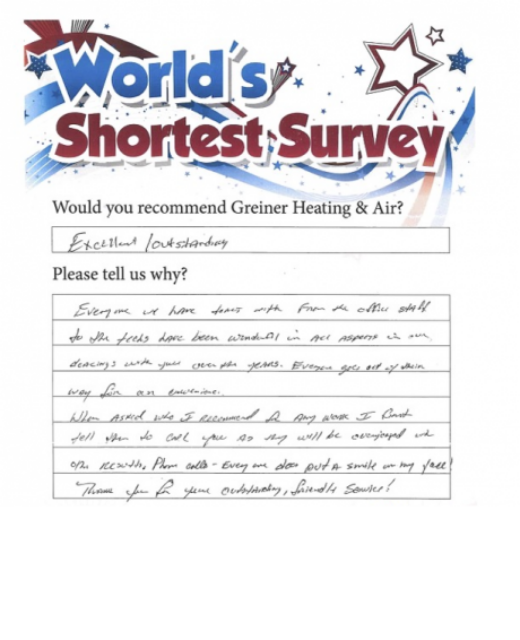 World's
Shortest Survey
Would you recommend Greiner Heating & Air?
Excellent / outstanding
Please tell us why?
Everyone we have with From the office staff
to the techs have been wonderful in all aspects in our
dealings with you over the years. Everyone goes out of their
way for an
When Asked who I recommend for Any work I
tell them to call you as they will be overjoyed
the results. Phone calls - Every one does put a smile on my face!
Thank you for your outstanding, friendly Service!